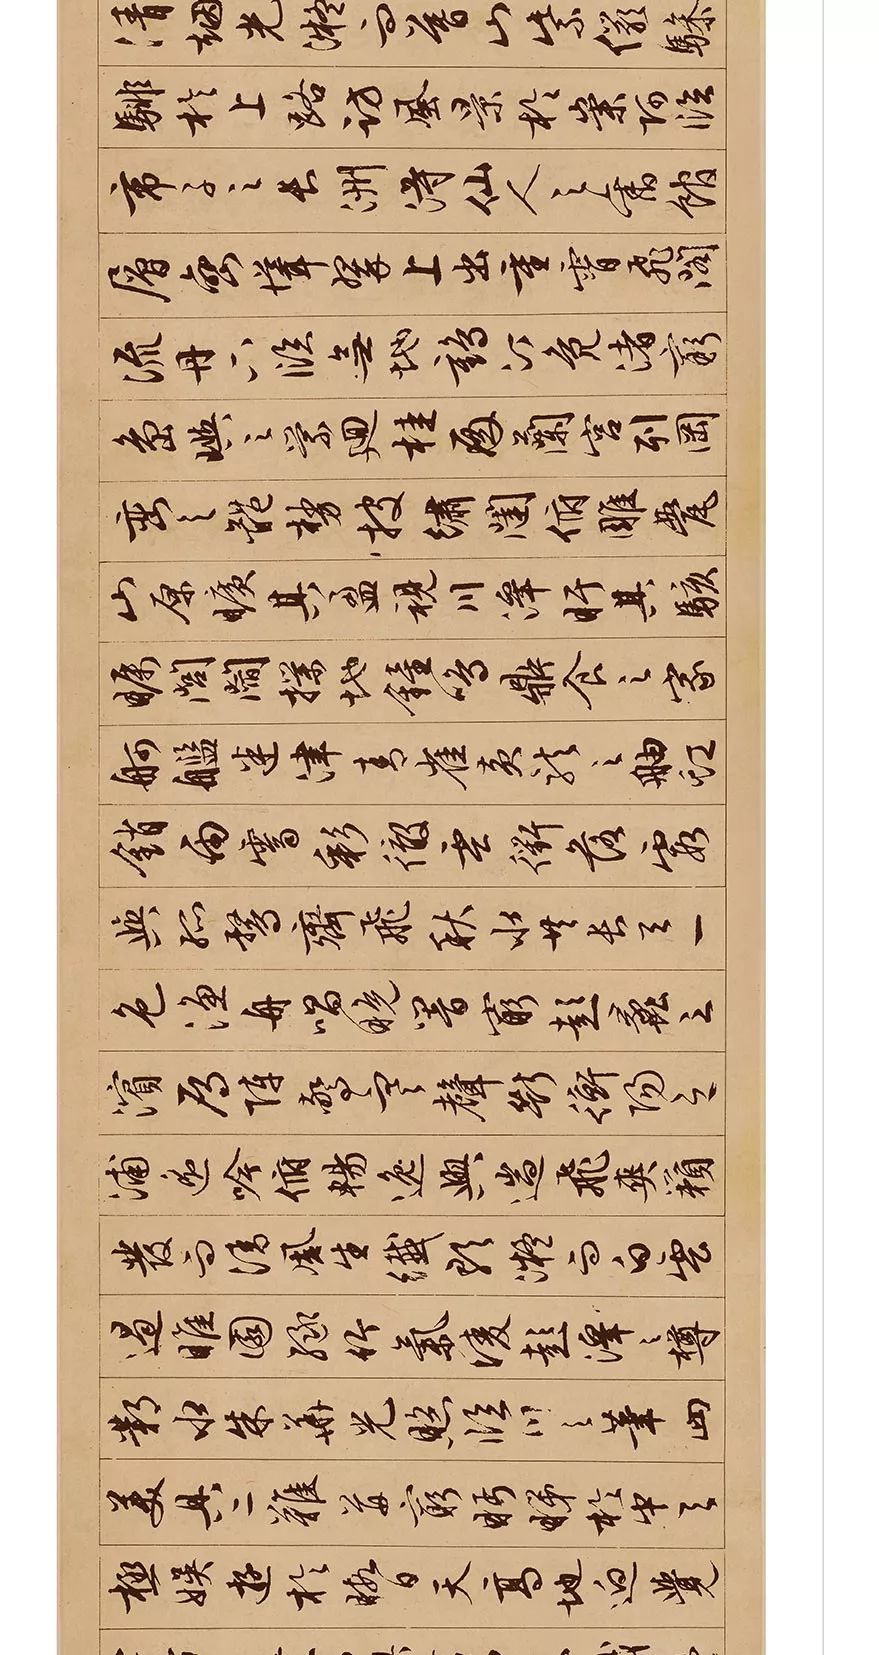 清烟光凝而暮山紫儼驂
騑於上路訪風景於崇阿臨
帝子之長洲得仙人之舊館
層巒聳翠上出重霄飛閣
流丹下臨無地鶴汀鳧渚窮
島嶼之縈迴桂殿蘭宮列岡
巒之體勢披繡闥俯雕甍
山原曠其盈視川澤盱其駭
矚閭閻撲地鐘鳴鼎食之家
舸艦迷津青雀黃龍之舳虹
銷雨霽彩徹雲衢落霞
與孤鶩齊飛秋水共長天一
色漁舟唱晚響窮彭蠡之
濱雁陣驚寒聲斷衡陽之
浦遙吟俯暢逸興遄飛爽籟
發而清風生纖歌凝而白雲
遏睢園綠竹氣凌彭澤之樽
鄴水朱華光照臨川之筆四
美具二難并窮眄睇於中天
極娛遊於暇日天高地迥覺